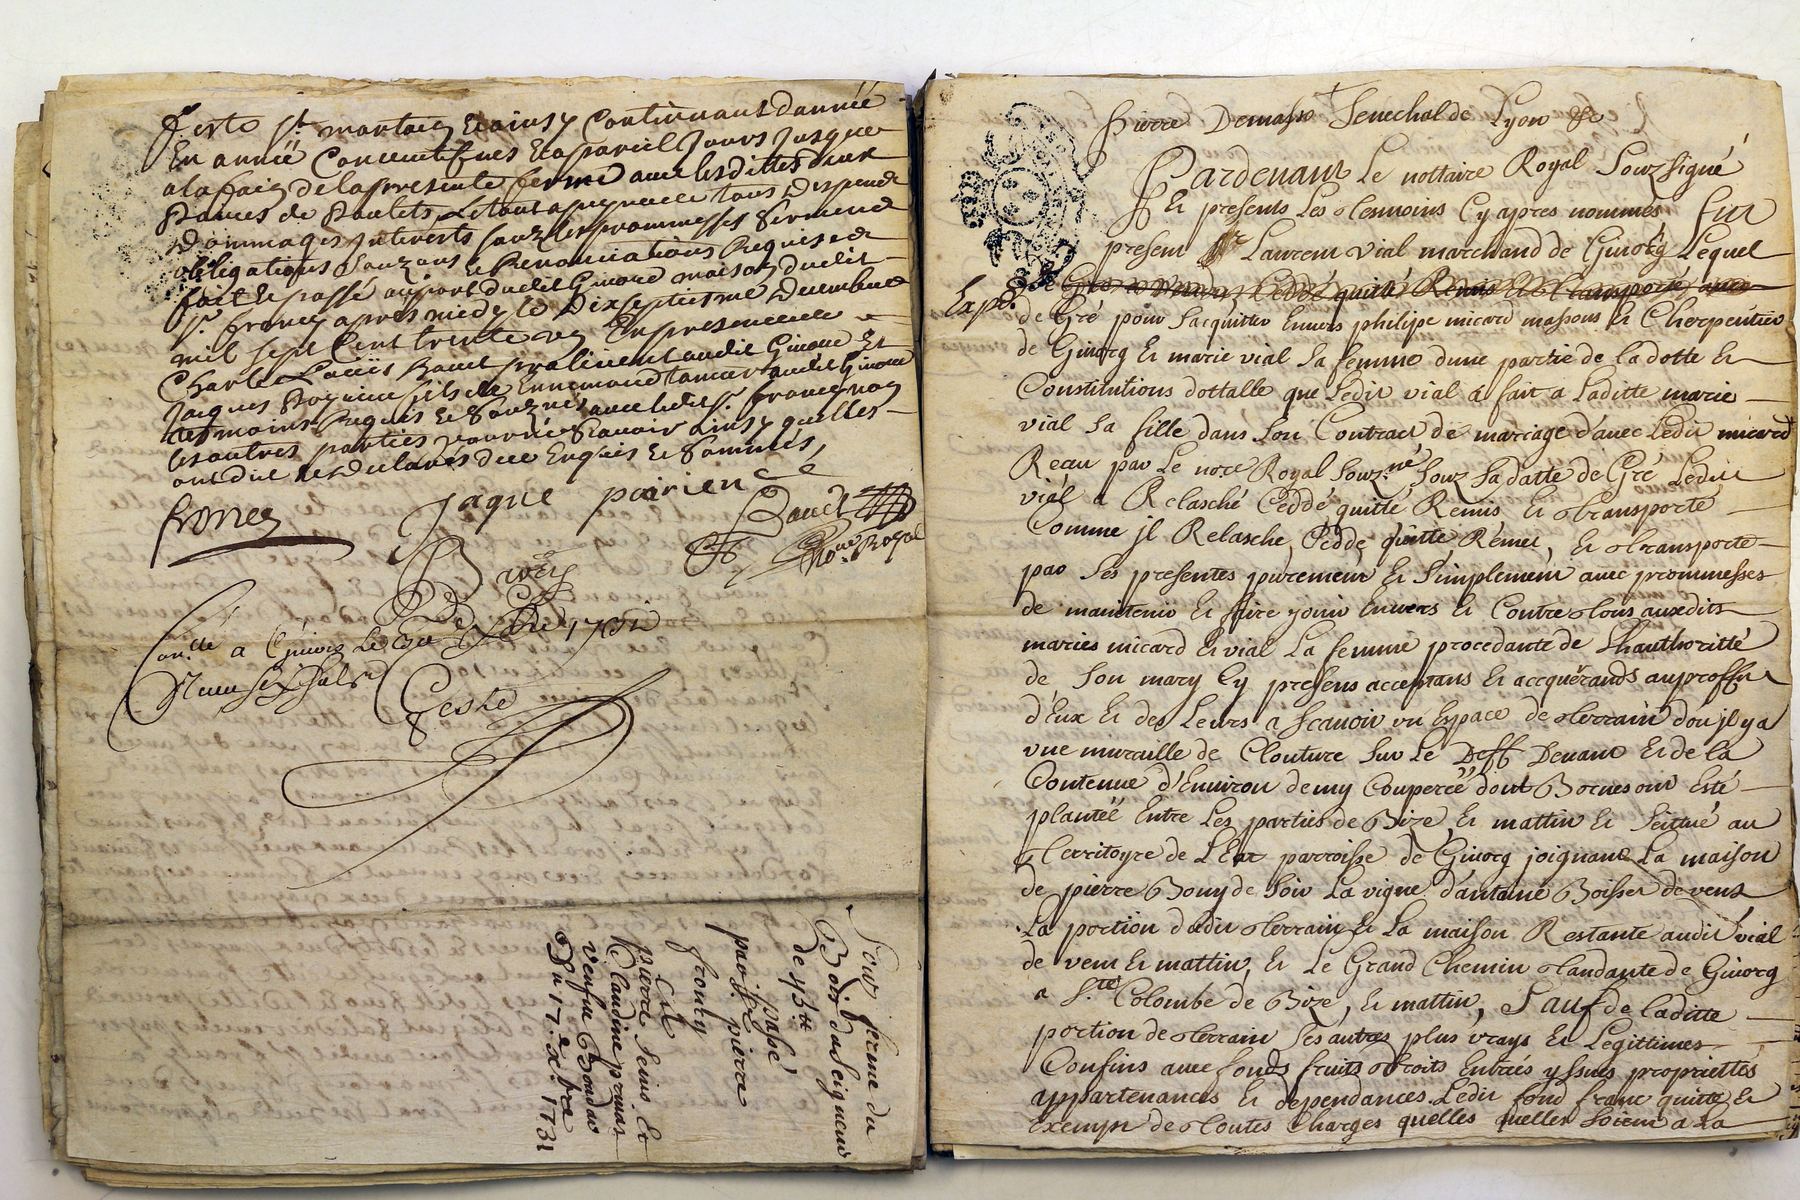 feste st martin Et ainsy Continuant dannée
En année Consecutifves Et a pareil Jours Jusques
a la fain de la presente ferme avec lesdittes deux
Paires de Poulets, Le tout a peyne de tous despends
dommages Interests souz les prommesses sermend
obligations souzmis & Renonciations Requises &
fait Et passé au port dudit Givord maison dudit
sr francy apres midy le Dix septiesme decembre
mil sept Cent trente un En presence de
Charle Louis Baud praticient audit Givord Et
Jacques fils de Ennemond audit Givord
tesmoins Requis Et souznés avec ledit sr francy non
les autres parties pour ne scavoir ainsy quelles
ont dit Et déclarés de ce Enquis Et sommés,
froncy
Jaque poirien
Baud
Nore Royal
Conllé a Givors Le 1731
Reçu six sols
Geste
Pour ferme du
Bois du seigneur
de 45tt
passé
par sre pierre
froncy
Cil
pierre Seino Et
Claudine privas
veufve Bondar
Du 17.e xbre 1731
Pierre Demasso Senechal de Lyon &c
Pardevant Le nottaire Royal Souzsigné
Et presents Les tesmoins Cy apres nommés fut
present Sr Laurent vial marchand de Givorg Lequel
de Gré a Ceddé quitté Remis Et transporté avec
Expé. de Gré pour sacquitter Envers philipe micard massons Et Cherpentier
de Givorg Et marie vial sa femme dune partie de la dotte Et
Constitutions dottalle que Ledit vial a fait a Laditte marie
vial sa fille dans son Contract de mariage d'avec Ledit micard
Receu par Le nore Royal souzné souz sa datte de Gré Ledit
vial a Relasché Ceddé quitté Remis Et transporté
Comme jl Relasche, Cedde quitte Remet, Et transporte
par Ses presentes purement Et simplement avec prommesses
de maintenir Et faire jouir Envers Et Contre tous auxdits
mariés micard Et vial La femme procedante de Lhauthoritté
de son mary Cy presens acceptans Et accquérands au proffit
d'Eux Et des Leurs a scavoir un Espace de terrain d'ou jl y a
une muraille de Clouture sur Le Deff Devant Et de la
Contenue d'Environ demy Couperée dont Bornes ont Esté
plantéé Entre Les parties de Bize Et mattin Et scittué au
territoyre de L'Est parroisse de Givorg joignant La maison
de pierre Bony de soir La vigne d'antoine Boisser de vent
La portion dudit terrain Et La maison Restante audit vial
de vent Et mattin, Et Le Grand Chemin tandante de Givorg
a Ste Colombe de Bize, Et mattin, Sauf de laditte
portion de terrain ses autres plus vrays Et Legittimes
Confins avec fonds fruits droits Entrés yssues propriettés
appartenances Et dependances. Ledit fond franc quitte Et
Exempt de toutes Charges quelles quelles soient a La